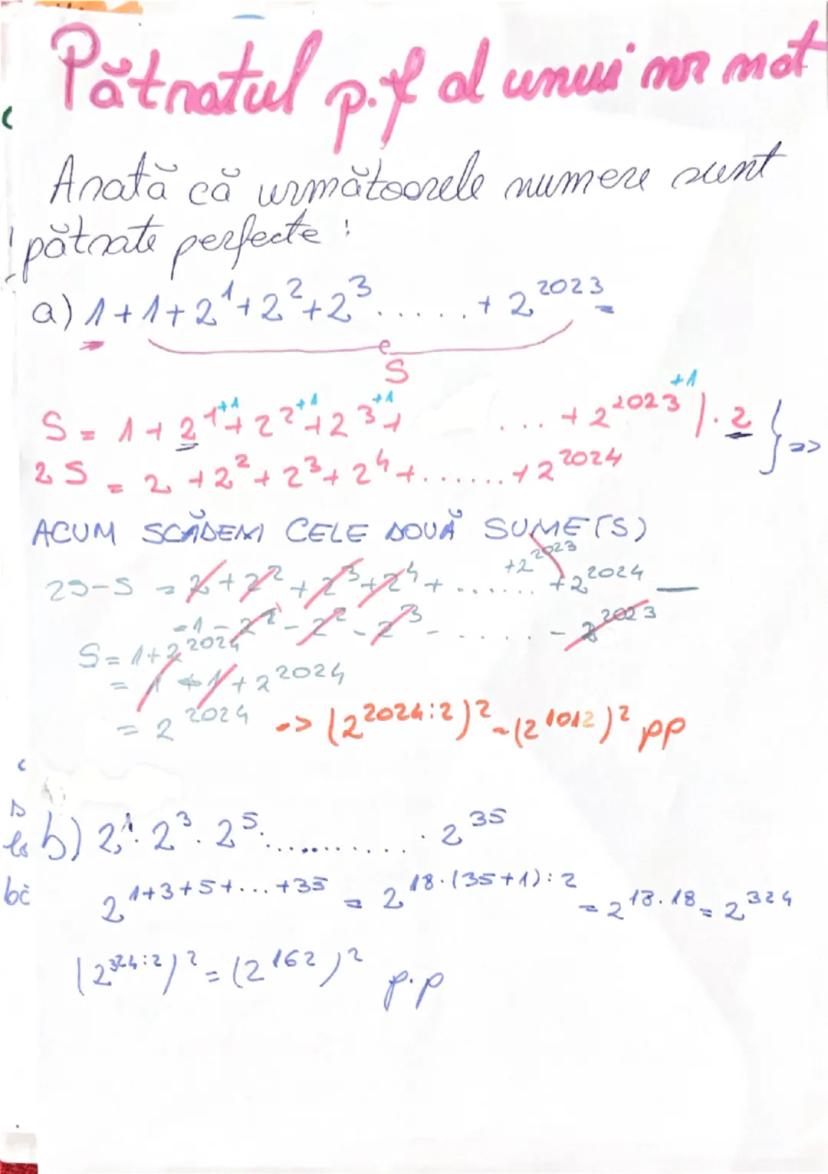 Pătratul p.f al unui nr nat
Arată că următoarele numere sunt
pătrate perfecte :
a) 1 + 1 + 2^1 + 2^2 + 2^3 ...... + 2^2023 =
S
+1 +1 +1 +1
S = 1 + 2^1 + 2^2 + 2^3 + ... + 2^2023 | · 2 } =>
2S = 2 + 2^2 + 2^3 + 2^4 + ....... + 2^2024
ACUM SCĂDEM CELE DOUĂ SUME(S)
2S-S = 2 + 2^2 + 2^3 + 2^4 + ...... +2^2023 + 2^2024 —
= 1 - 2^1 - 2^2 - 2^3 - ...... - 2^2023
S = 1 + 2^2024
= 1 + 1 + 2^2024
= 2^2024 -> (2^2024:2)^2 = (2^1012)^2 pp
b) 2^1 · 2^3 · 2^5 · ........... · 2^35
2^1+3+5+...+35 = 2^18·(35+1):2 = 2^18·18 = 2^324
(2^324:2)^2 = (2^162)^2 p.p